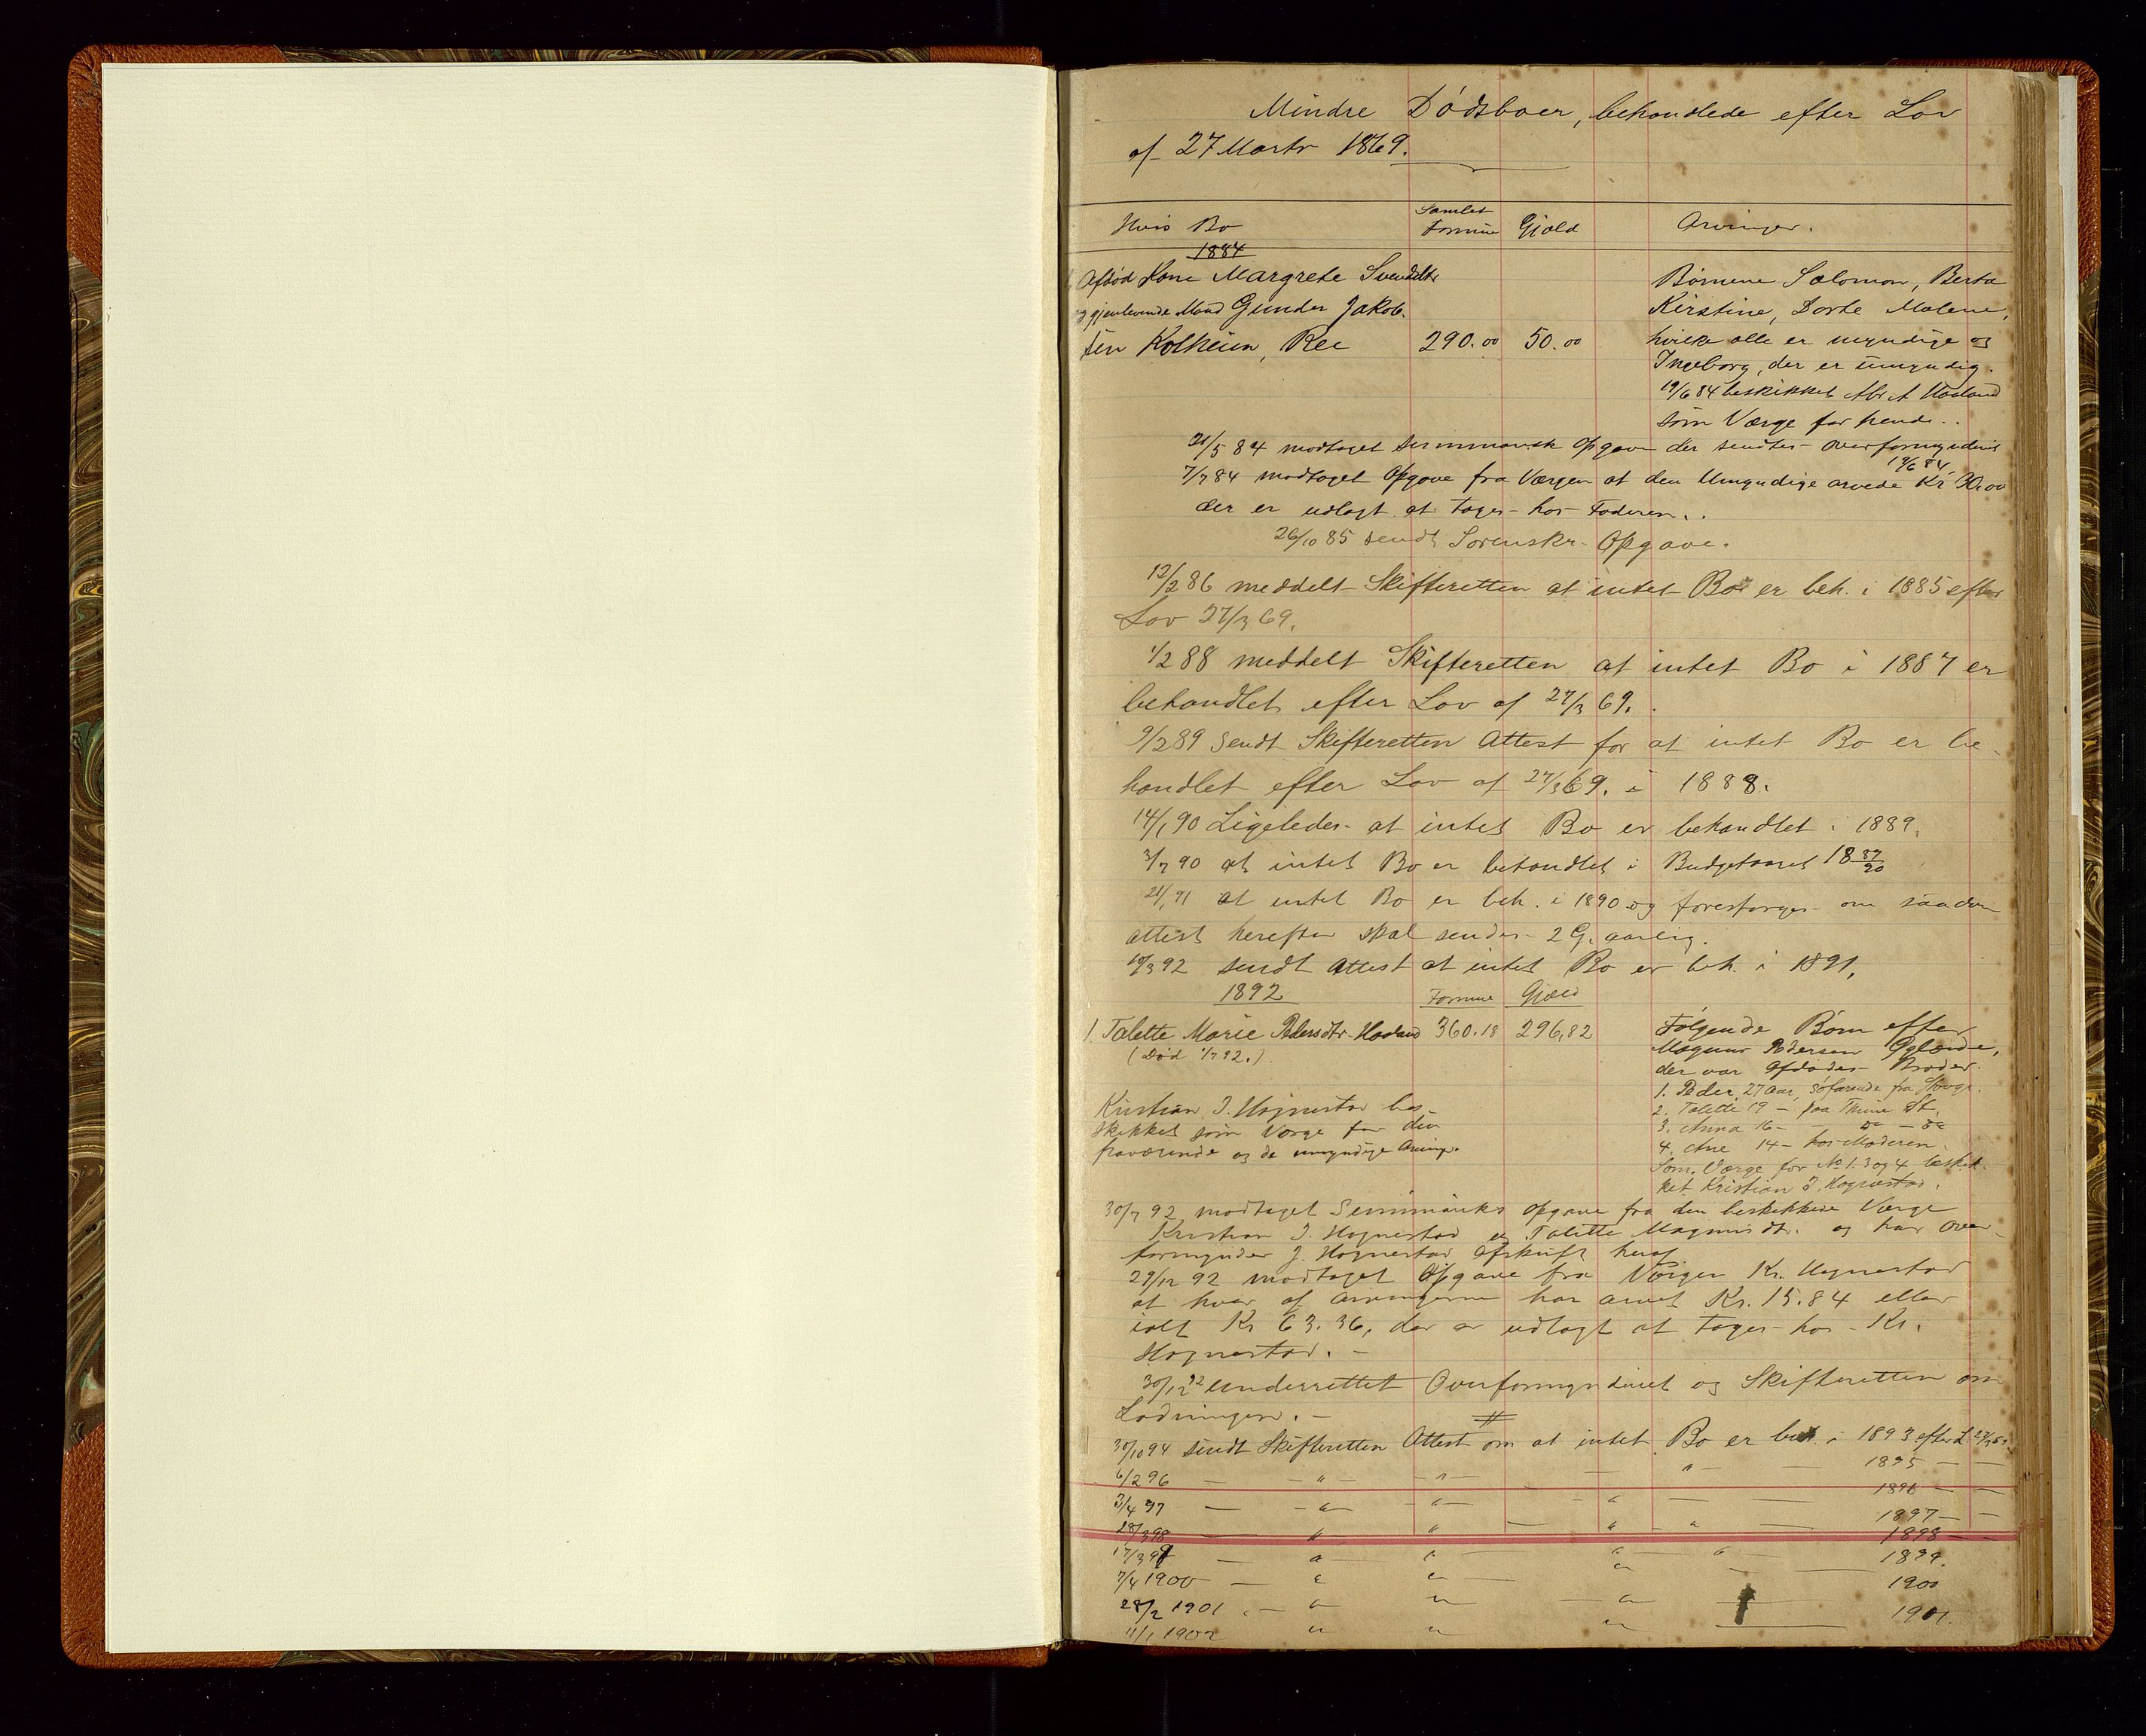 Mindre Dødsboer, behandlede efter Lov
af 27 Marts 1869.
Hvis Bo
Samlet Formue
Gjæld
Arvinger.
1884
1 Afdød Kone Margrete Svendsdtr
og gjenlevende Mand Gunder Jakob-
sen Kolheim, Ree 290.00 50.00
Børnene Salomon, Berta
Kirstine, Dorte Malene,
hvilke alle er myndige og
Ingeborg, der er umyndig.
19/6 84 beskikket Abr. A Haaland
som Værge for hende..
21/5 84 modtaget summarisk Opgave der sendtes Overformynderiet
19/6 84.
7/7 84 modtaget Opgave fra Værgen at den Umyndige arvede Kr 30.00
der er udlagt at tages hos Faderen..
26/10 85 sendt Sorenskr. Opgave.
12/2 86 meddelt Skifteretten at intet Bo er beh. i 1885 efter
Lov 27/3 69.
1/2 88 meddelt Skifteretten at intet Bo i 1887 er
behandlet efter Lov af 27/3 69.
9/2 89 Sendt Skifteretten Attest for at intet Bo er be-
handlet efter Lov af 27/3 69. i 1888.
14/1 90 Ligeledes at intet Bo er behandlet i 1889.
3/7 90 at intet Bo er behandlet i Budgetaaret 18 89/90
21/1 91 at intet Bo er beh. i 1890 og forespørges om saadan
attest herefter skal sendes 2 G. aarlig.
10/3 92 sendt Attest at intet Bo er beh. i 1891.
1892 Formue Gjæld
1. Talette Marie Pedersdtr. Haaland 360.18 296,82
(Død 1/7 92.)
Følgende Børn efter
Magnus Pedersen Øglænd,
der var Afdødes Broder.
1. Peder 27 Aar, Søfarende fra
2. Talette 19 – paa Thime St.
3. Anna 16 – – do – do
4. Ane 14 – hos Moderen.
Som Værge for No 1. 3 og 4 beskik-
ket Kristian J. Hognestad.
Kristian J. Hognestad bes-
skikket som Værge for den
fraværende og de umyndige Arving.
30/7 92 modtaget Summarisk Opgave fra den beskikkede Værge
Kristian J. Hognestad og Talette Magnusdtr. og har Over-
formynder J. Hognestad Afskrift heraf
29/12 92 modtaget Opgave fra Værgen Kr. Hognestad
at hver af Arvingerne har arvet Kr. 15.84 eller
ialt Kr 63.36, der er udlagt at tages hos Kr.
Hognestad. –
30/12 92 underrettet Overformynderiet og Skifteretten om
Lodningen. –
30/10 94 sendt Skifteretten Attest om at intet Bo er beh. i 1893 efter L 27/3 69
6/2 96 — – " – – " – — " — 1895 — —
3/4 97 — – " – " — – " — — 1896 — —
28/3 98 — " " — " – " — 1897 — —
17/3 99 — " " — " " — 1898 — —
7/4 1900 — " " — " — 1899.
28/2 1901 . – " " — " — 1900
11/1 1902 " " " — 1901.